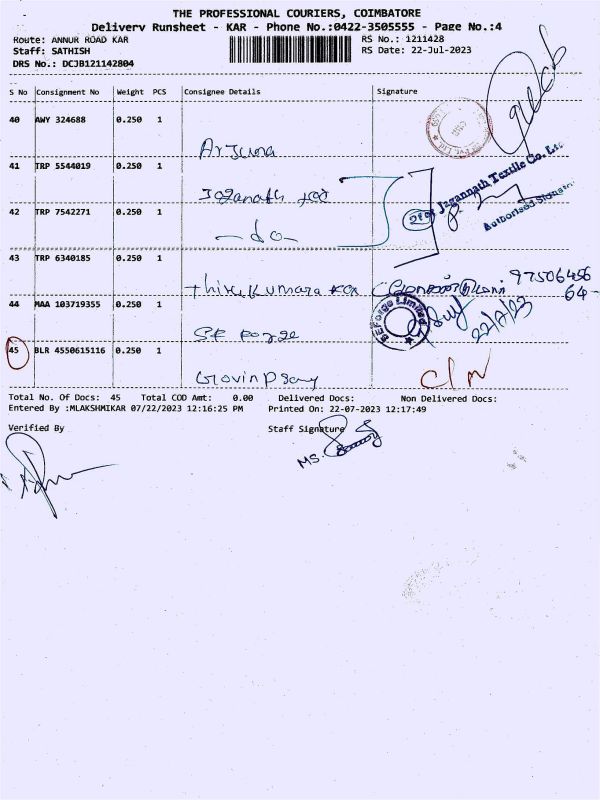 THE PROFESSIONAL COURIERS, COIMBATORE
Delivery Runsheet - KAR - Phone No.:0422-3505555 - Page No.:4
Route: ANNUR ROAD KAR
RS No.: 1211428
Staff: SATHISH
RS Date: 22-Jul-2023
DRS No.: DCJB121142804
S No Consignment No Weight PCS Consignee Details Signature
40 AWY 324688 0.250 1
Arjuna
41 TRP 5544019 0.250 1
Jagannath
Jagannath Textile Co. Lt
Authorised Signator
42 TRP 7542271 0.250 1
- do -
43 TRP 6340185 0.250 1
Thirukumara
97506456
64-
44 MAA 103719355 0.250 1
SE Forge
SE Forge Limited
22/7/23
45 BLR 4550615116 0.250 1
C/N
Total No. Of Docs: 45 Total COD Amt: 0.00 Delivered Docs: Non Delivered Docs:
Entered By :MLAKSHMIKAR 07/22/2023 12:16:25 PM Printed On: 22-07-2023 12:17:49
Verified By Staff Signature
MS.